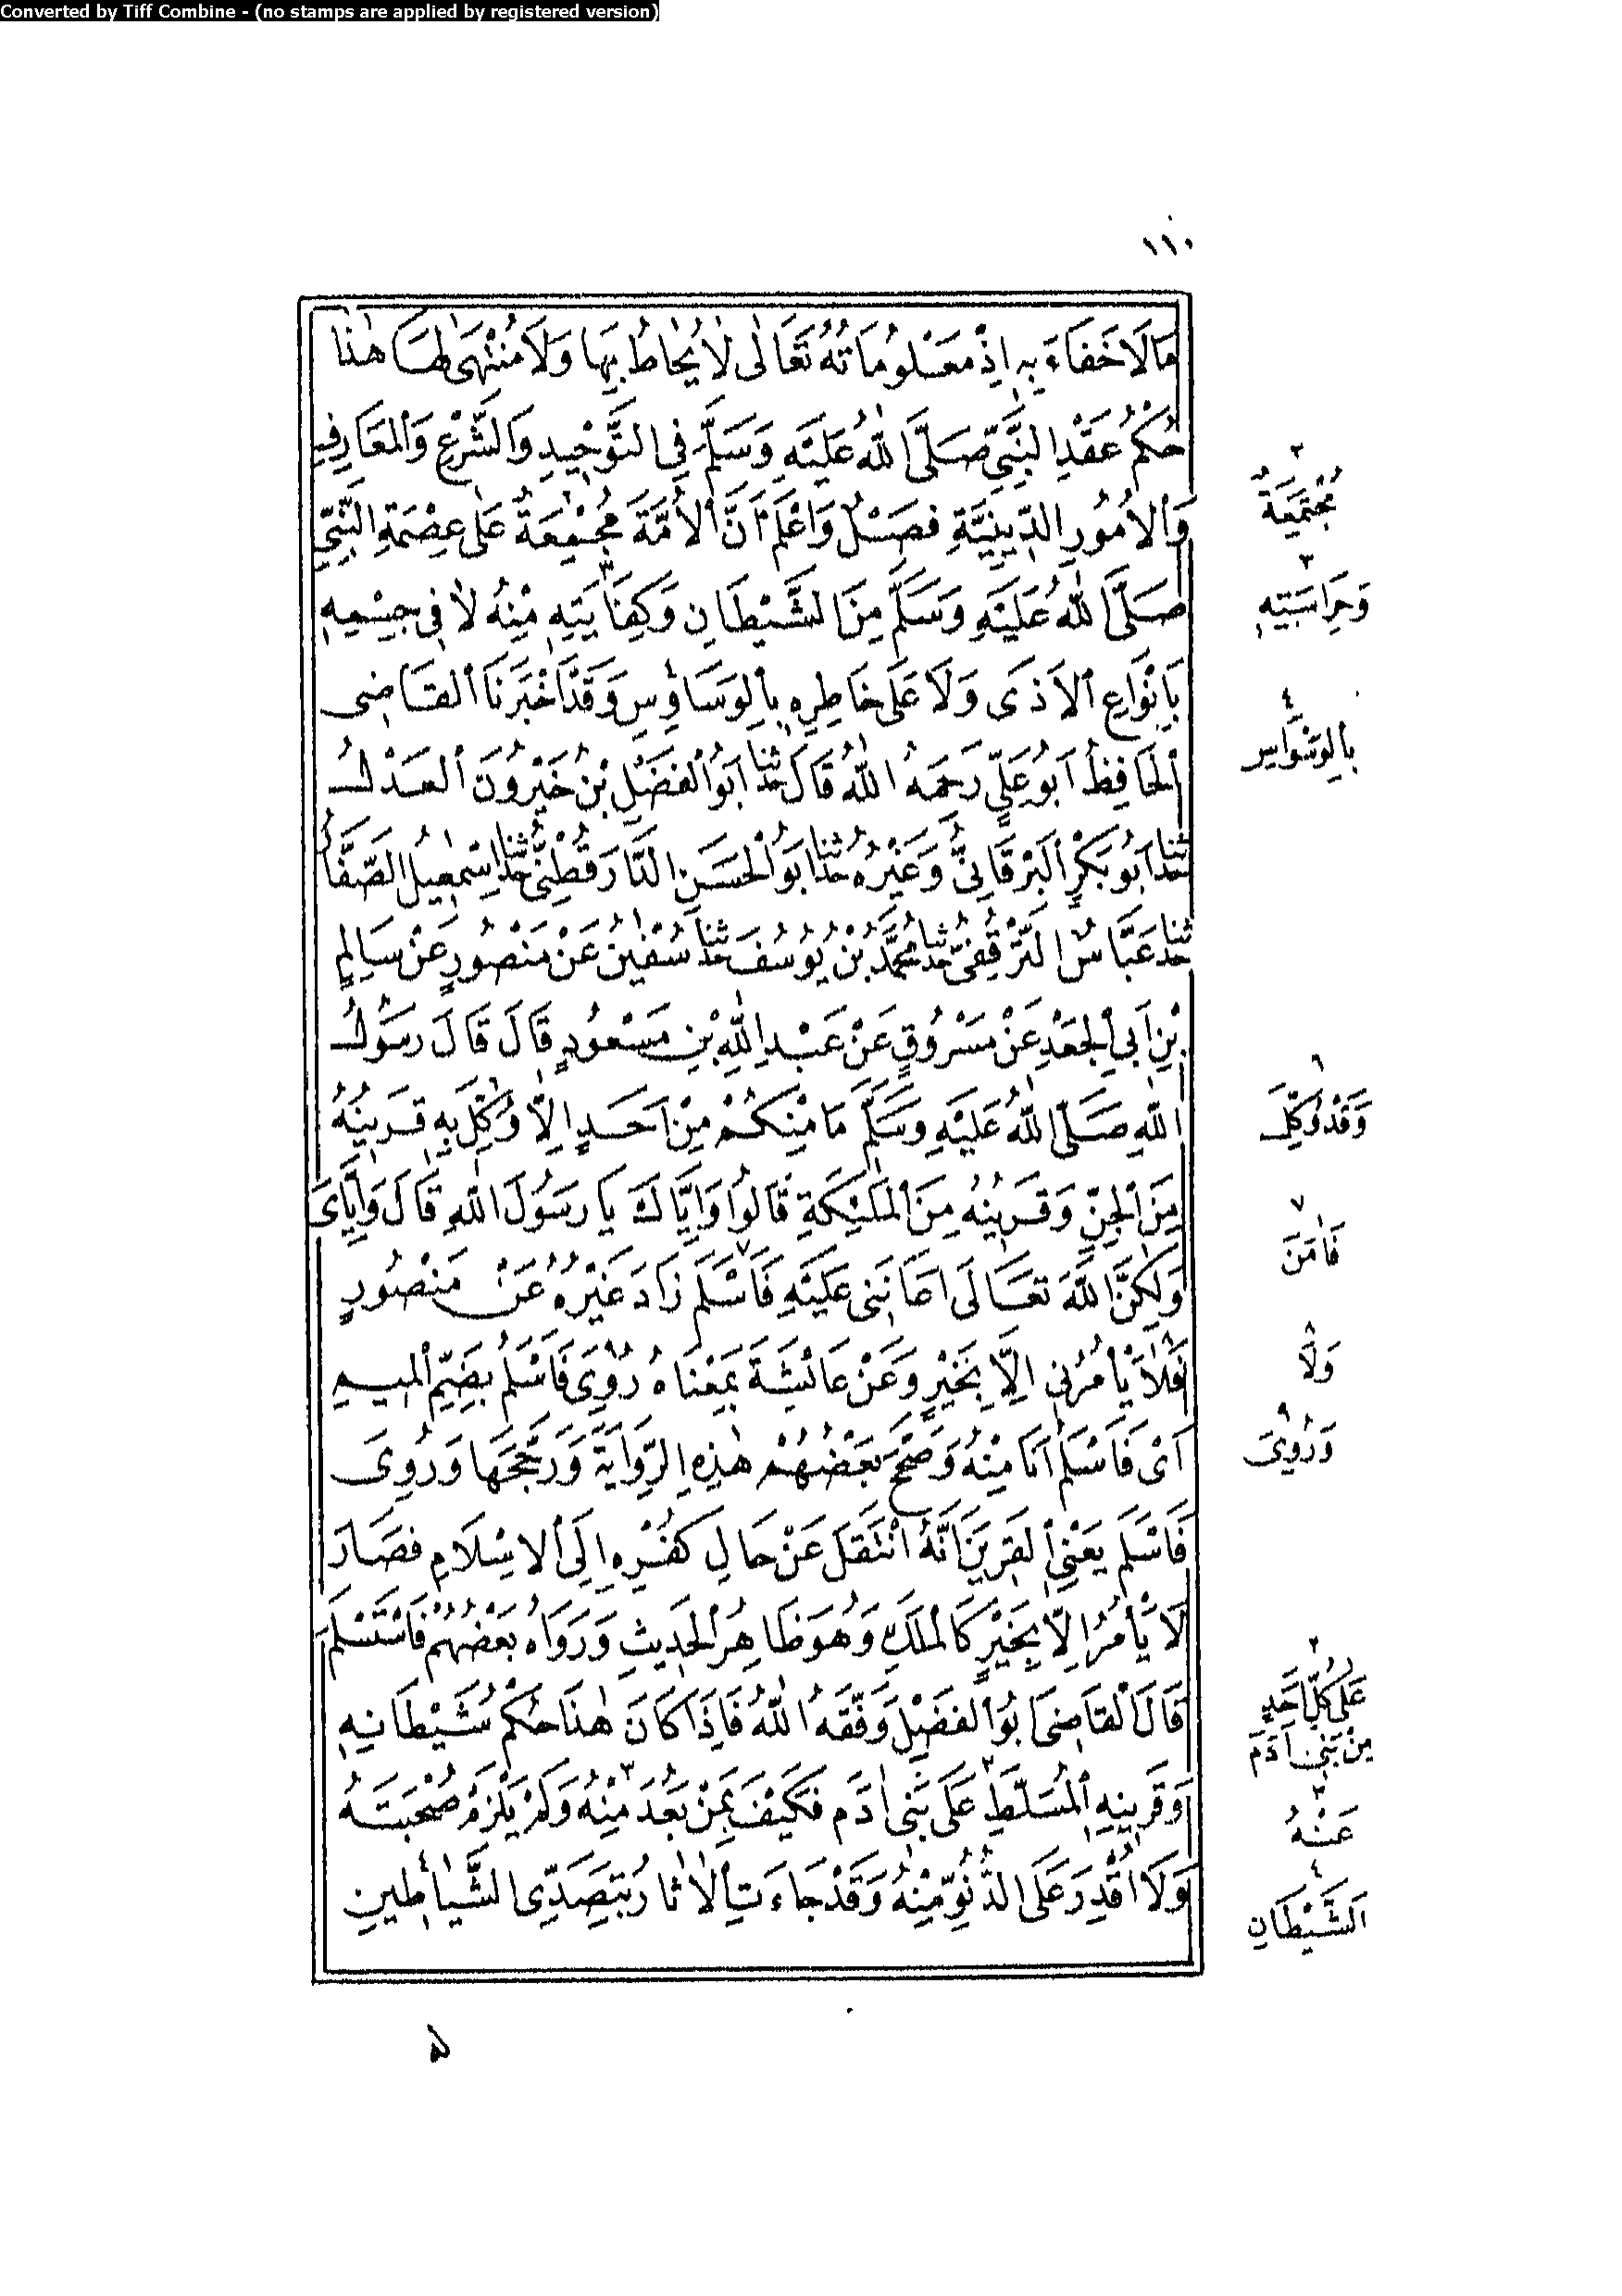 Converted by Tiff Combine - (no stamps are applied by registered version)
١١٠
مَالَا خَفَاءَ بِهِ اِذْ مَعْلُومَاتُهُ تَعَالٰى لَا يُحَاطُ بِهَا وَلَا مُنْتَهٰى لَهَا هٰذَا
حُكْمُ عَقْدِ النَّبِيِّ صَلَّى اللّٰهُ عَلَيْهِ وَسَلَّمَ فِي التَّوْحِيدِ وَالشَّرْعِ وَالْمَعَارِفِ
وَالْاُمُورِ الدِّينِيَّةِ فَصْلٌ وَاعْلَمْ اَنَّ الْاُمَّةَ مُجْمِعَةٌ عَلٰى عِصْمَةِ النَّبِيِّ
صَلَّى اللّٰهُ عَلَيْهِ وَسَلَّمَ مِنَ الشَّيْطَانِ وَكِفَايَتِهِ مِنْهُ لَا فِي جِسْمِهِ
بِاَنْوَاعِ الْاَذَى وَلَا عَلَى خَاطِرِهِ بِالْوَسَاوِسِ وَقَدْ اَخْبَرَنَا الْقَاضِى
الْحَافِظُ اَبُو عَلِيٍّ رَحِمَهُ اللّٰهُ قَالَ حَدَّثَنَا اَبُو الْفَضْلِ بْنُ خَيْرُونَ الْعَدْلُ
حَدَّثَنَا اَبُو بَكْرٍ الْبَرْقَانِيُّ وَغَيْرُهُ حَدَّثَنَا اَبُو الْحَسَنِ الدَّارَقُطْنِيُّ حَدَّثَنَا اِسْمٰعِيلُ الصَّفَّارُ
حَدَّثَنَا عَبَّاسٌ التَّرْقُفِيُّ حَدَّثَنَا مُحَمَّدُ بْنُ يُوسُفَ حَدَّثَنَا سُفْيٰنُ عَنْ مَنْصُورٍ عَنْ سَالِمِ
بْنِ اَبِي الْجَعْدِ عَنْ مَسْرُوقٍ عَنْ عَبْدِ اللّٰهِ بْنِ مَسْعُودٍ قَالَ قَالَ رَسُولُ
اللّٰهِ صَلَّى اللّٰهُ عَلَيْهِ وَسَلَّمَ مَا مِنْكُمْ مِنْ اَحَدٍ اِلَّا وُكِّلَ بِهِ قَرِينُهُ
مِنَ الْجِنِّ وَقَرِينُهُ مِنَ الْمَلٰئِكَةِ قَالُوا وَاِيَّاكَ يَا رَسُولَ اللّٰهِ قَالَ وَاِيَّاىَ
وَلٰكِنَّ اللّٰهَ تَعَالَى اَعَانَنِى عَلَيْهِ فَاَسْلَمَ زَادَ غَيْرُهُ عَنْ مَنْصُورٍ
فَلَا يَأْمُرُنِى اِلَّا بِخَيْرٍ وَعَنْ عَائِشَةَ بِمَعْنَاهُ رُوِىَ فَاَسْلَمُ بِضَمِّ الْمِيمِ
اَىْ فَاَسْلَمُ اَنَا مِنْهُ وَصَحَّحَ بَعْضُهُمْ هٰذِهِ الرِّوَايَةَ وَرَجَّحَهَا وَرُوِىَ
فَاَسْلَمَ يَعْنِى الْقَرِينَ اَنَّهُ انْتَقَلَ عَنْ حَالِ كُفْرِهِ اِلَى الْاِسْلَامِ فَصَارَ
لَا يَأْمُرُ اِلَّا بِخَيْرٍ كَالْمَلَكِ وَهُوَ ظَاهِرُ الْحَدِيثِ وَرَوَاهُ بَعْضُهُمْ فَاسْتَسْلَمَ
قَالَ الْقَاضِى اَبُو الْفَضْلِ وَفَّقَهُ اللّٰهُ فَاِذَا كَانَ هٰذَا حُكْمُ شَيْطَانِهِ
وَقَرِينِهِ الْمُسَلَّطِ ٢ عَلَى بَنِى اٰدَمَ فَكَيْفَ بِمَنْ بَعُدَ ٣ مِنْهُ وَلَمْ يَلْزَمْ صُحْبَتَهُ
وَلَا اُقْدِرَ عَلَى الدُّنُوِّ مِنْهُ وَقَدْ جَاءَتِ الْاٰثَارُ بِتَصَدِّى الشَّيَاطِينِ
٢
مُجْتَمِعَةٌ
٣
وَحِرَاسَتِهِ
٤
بِالْوَسْوَاسِ
٦
وَقَدْ وُكِّلَ
٧
فَاٰمَنَ
٨
وَلَا
٩
وَرُوِىَ
٢
عَلَى كُلِّ اَحَدٍ
مِنْ بَنِى اٰدَمَ
٣
عَنْهُ
٤
الشَّيْطَانِ